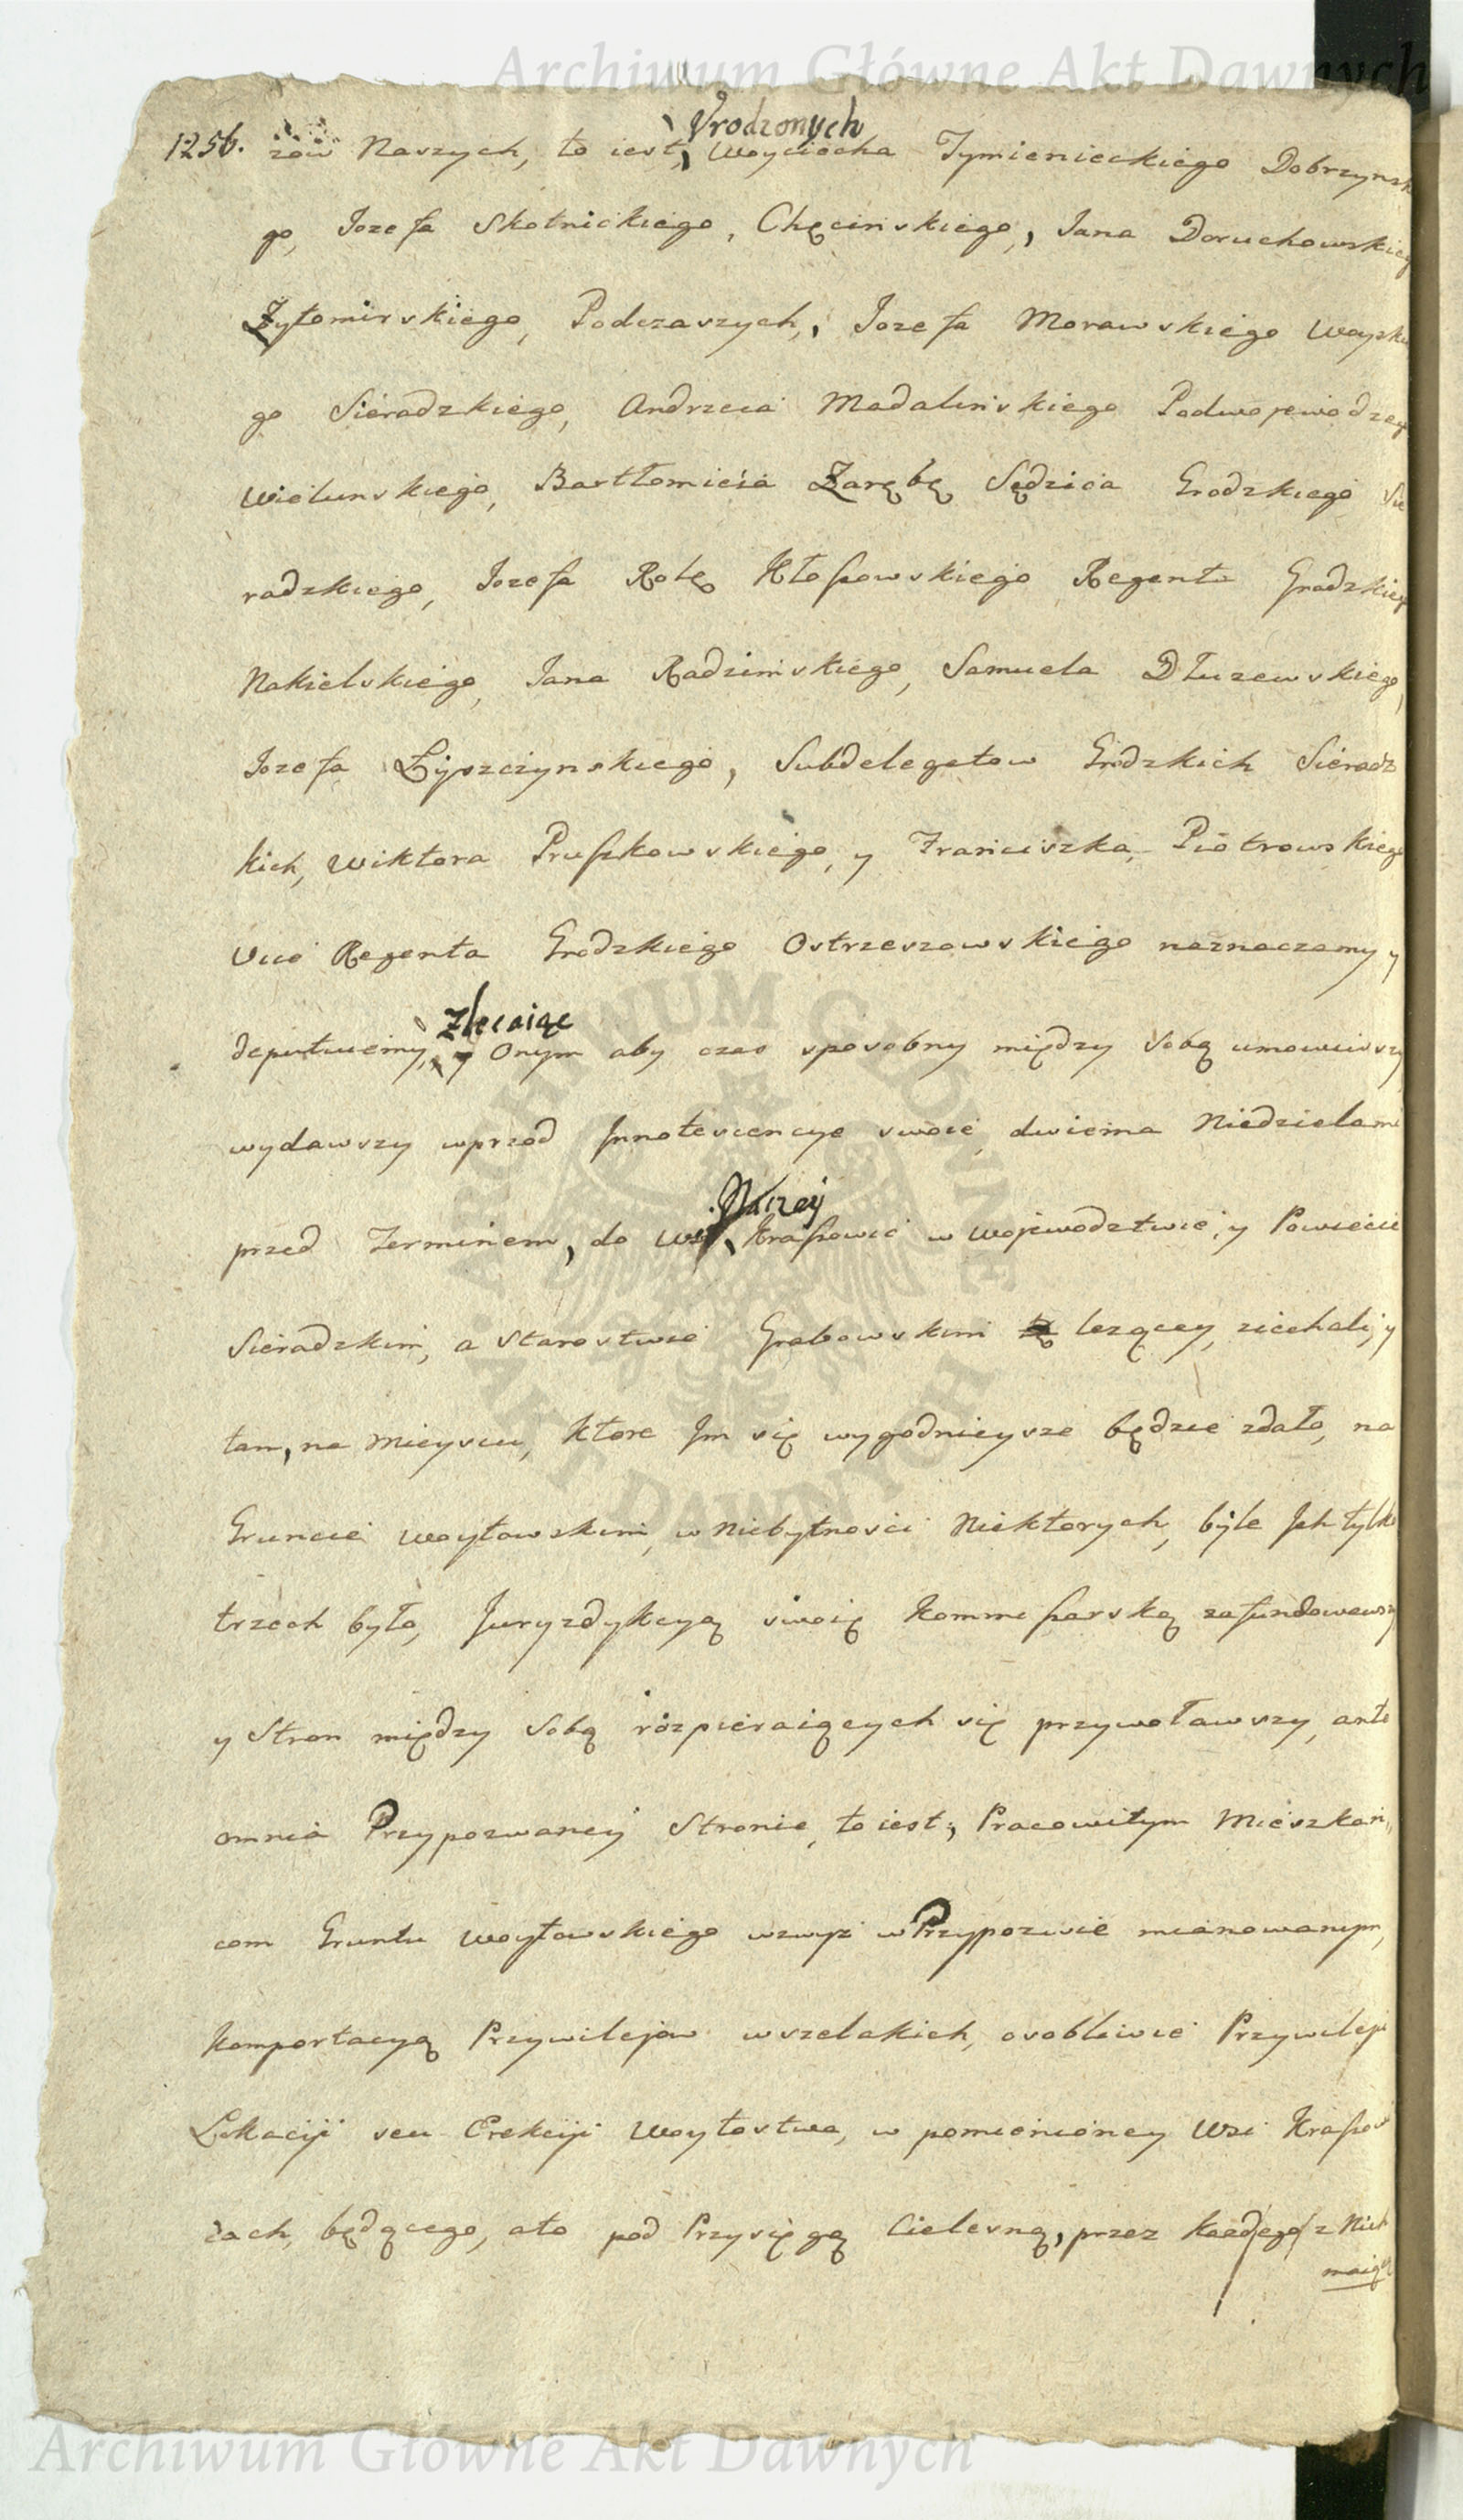 Archiwum Główne Akt Dawnych
Urodzonych
1256. zow Naszych, to iest, Woyciecha Tymienieckiego Dobrzynsk
go, Jozefa Skotnickiego, Chęcinskiego, Jana Doruchowskieg
Zytomirskiego, Podczaszych, Jozefa Morawskiego Woyskie
go Sieradzkiego, Andrzeia Madalinskiego Podwojewodzeg
Wielunskiego, Bartłomieia Zarębę Sędzica Grodzkiego Sie
radzkiego, Jozefa Rolę Kłossowskiego Regenta Grodzkieg
Nakielskiego, Jana Radzimskiego, Samuela Dłuzewskiego,
Jozefa Łyszczynskiego, Subdelegatow Grodzkich Sieradz
kich, Wiktora Pruszkowskiego, y Franciszka Piotrowskiego
Vice Regenta Grodzkiego Ostrzeszowskiego naznaczamy y
zlecaiąc
deputuiemy, y Onym aby czas sposobny między Sobą umowiwszy
wydawszy wprzod Innotescencye swoie dwiema Niedzielami
Naszey
przed Terminem, do Wsi, Krassowic w Wojewodztwie, y Powiecie
Sieradzkim, a Starostwie Grabowskim lezącey, ziechali, y
tam, na Mieyscu, ktore Im się wygodnieysze będzie zdało, na
Gruncie Woytowskim, w Niebytnosci Niektorych, byle Ich tylko
trzech było, Juryzdykcyą swoię Kommissarską zafundowawszy
y Stron między Sobą rozpieraiących się przywoławszy, ante
omnia Przypozwaney Stronie, to iest, Pracowitym Mieszkań,
com Gruntu Woytowskiego wzwyz w Przypozwie mianowanym,
Komportacyą Przywilejow wszelakich, osobliwie Przywileju
Lokacyi seu Erekcyi Woytostwa, w pomienioney Wsi Krassow
cach, będącego, a to pod Przysięgą Cielesną, przez kazdego z Nich
maiąc
Archiwum Główne Akt Dawnych